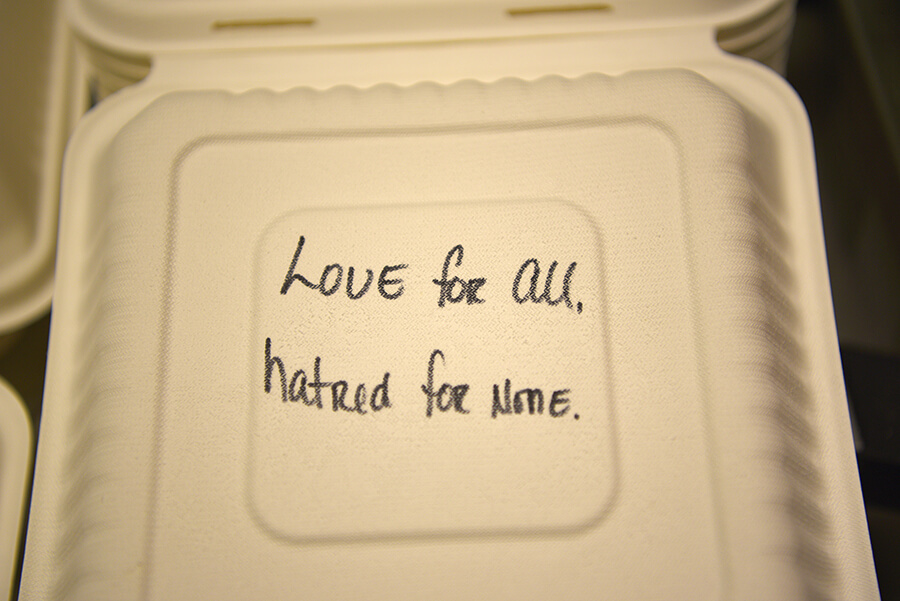 Love for all,
hatred for none.